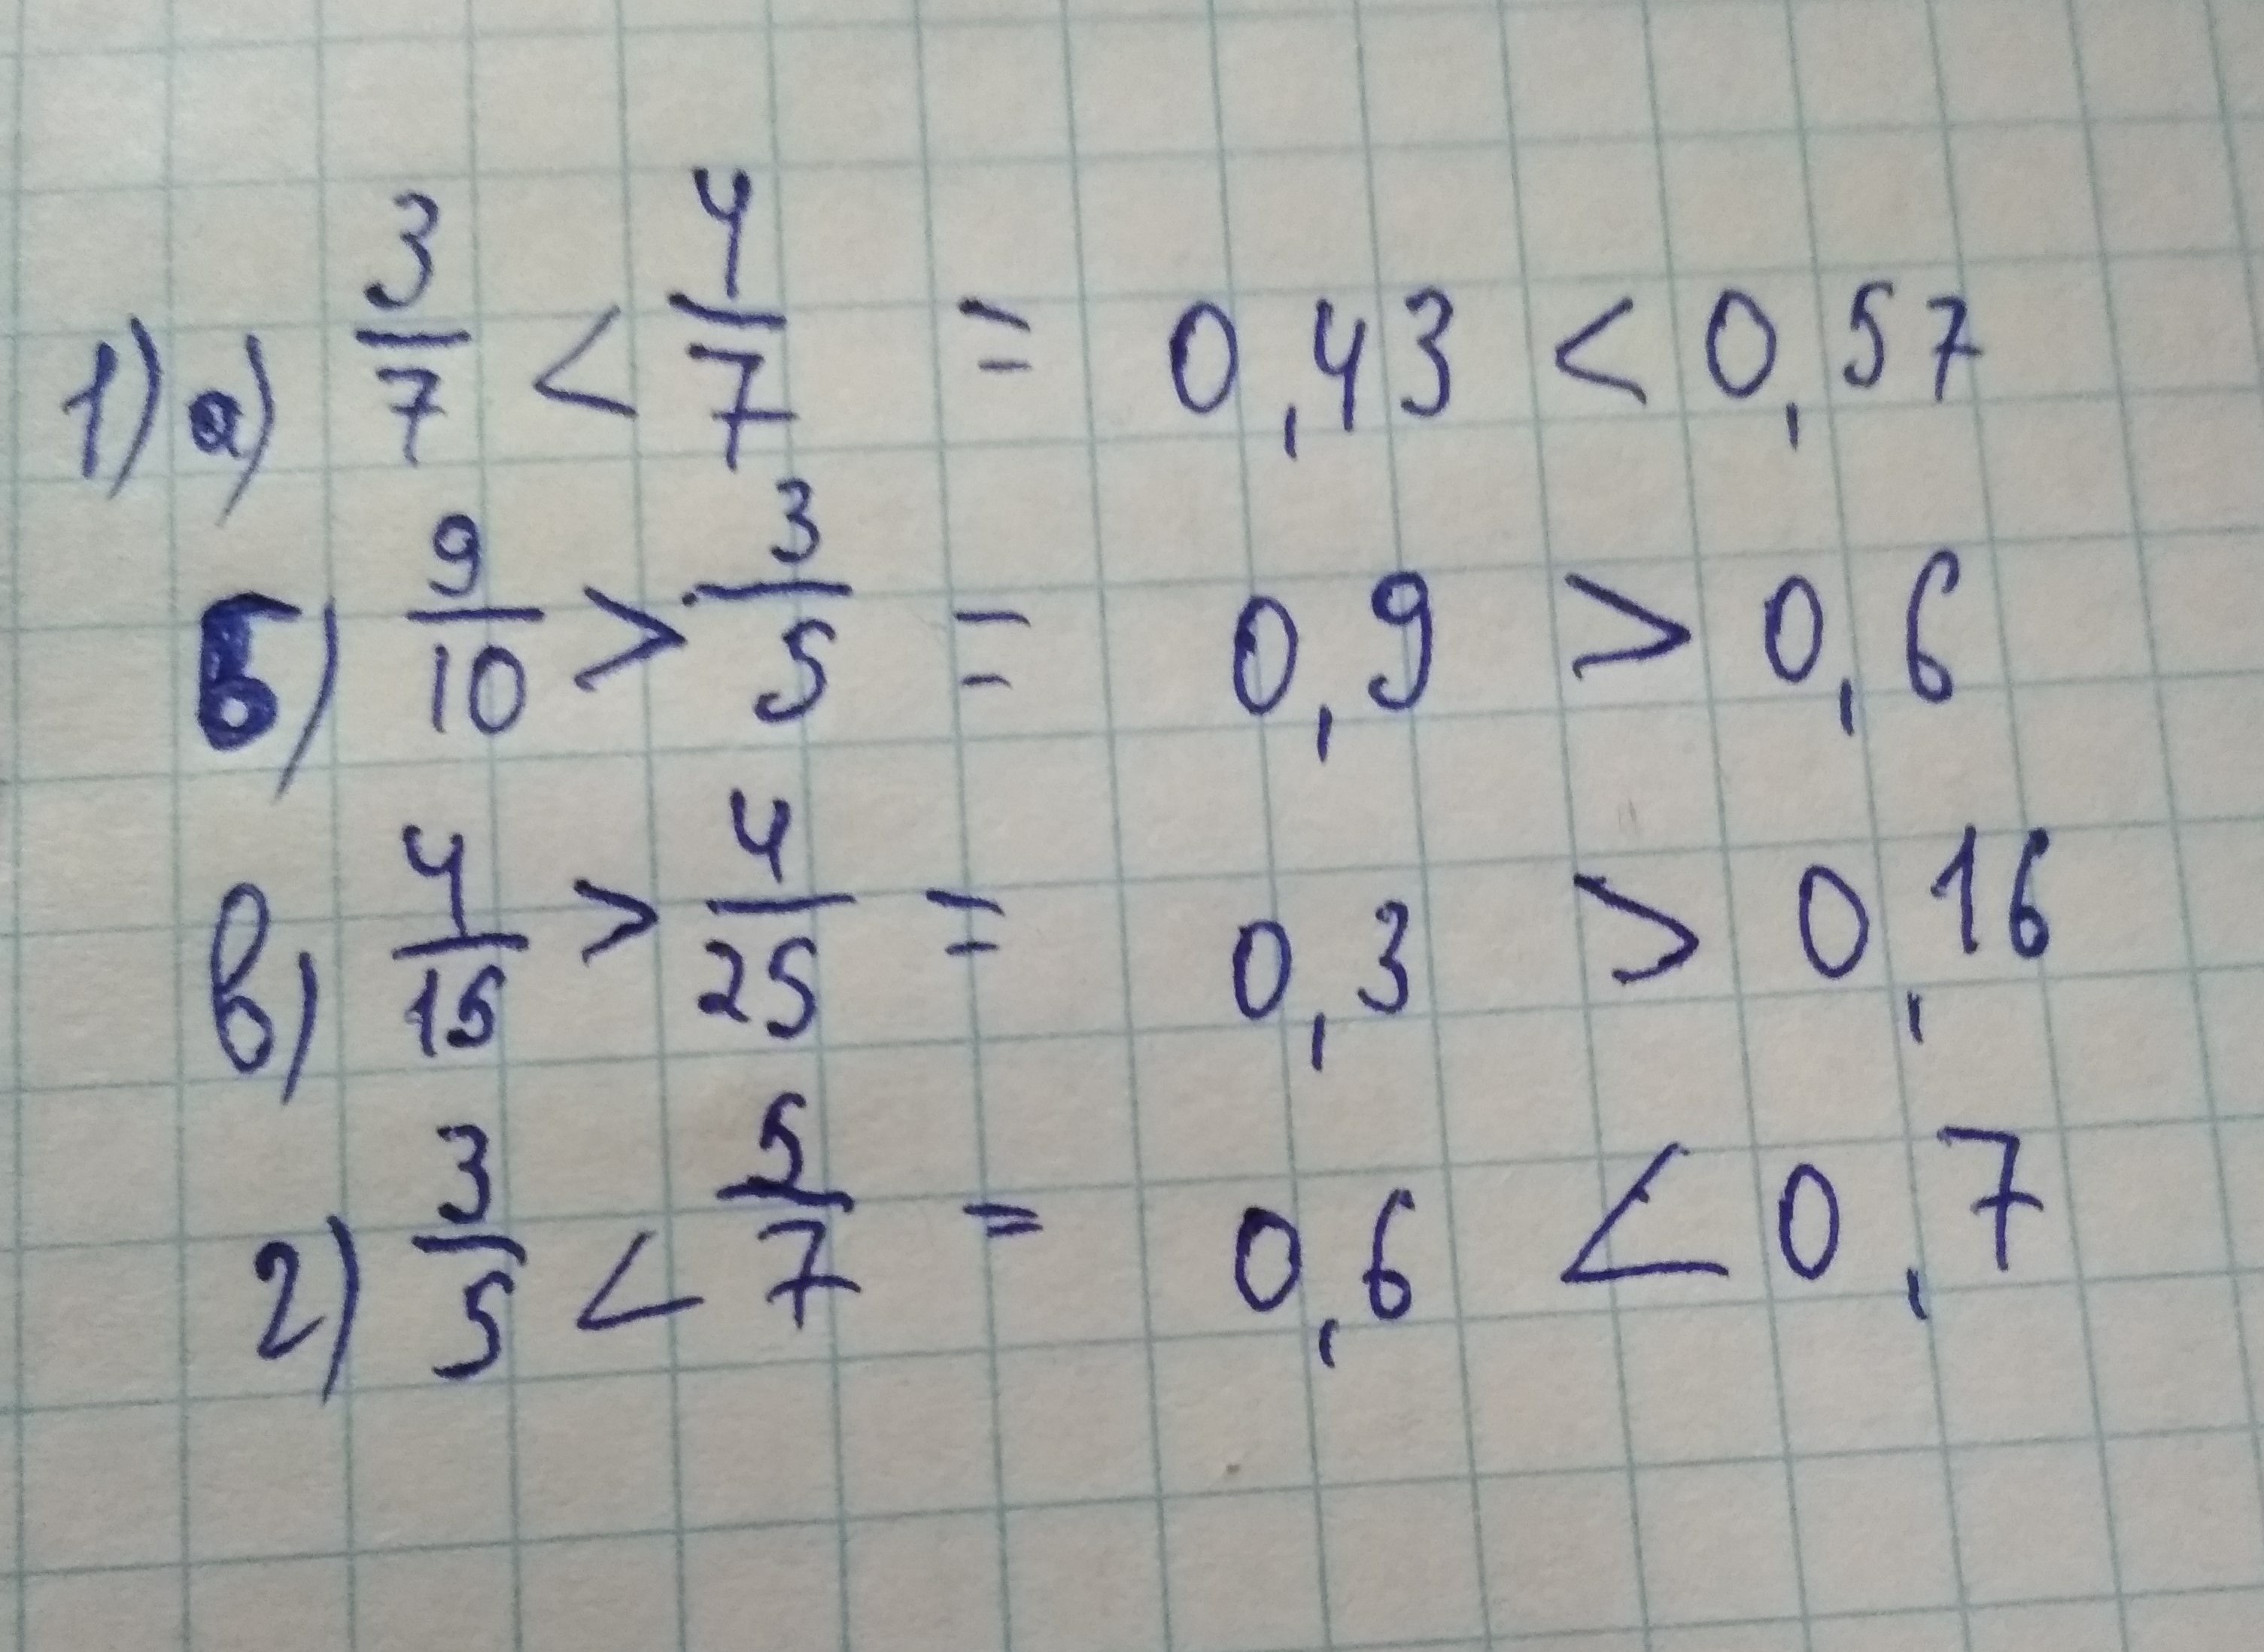 1) а) 3/7 < 4/7 = 0,43 < 0,57
б) 9/10 > 3/5 = 0,9 > 0,6
в) 4/15 > 4/25 = 0,3 > 0,16
г) 3/5 < 5/7 = 0,6 < 0,7